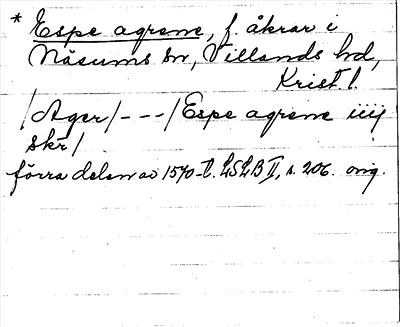 * Espe agrene, f. åkrar i
Näsums sn, Villands hd,
Krist. l.
/Ager/ - - - /Espe agrene iiij
skr/
förra delen av 1570-t. LSLB II, s. 206. orig.